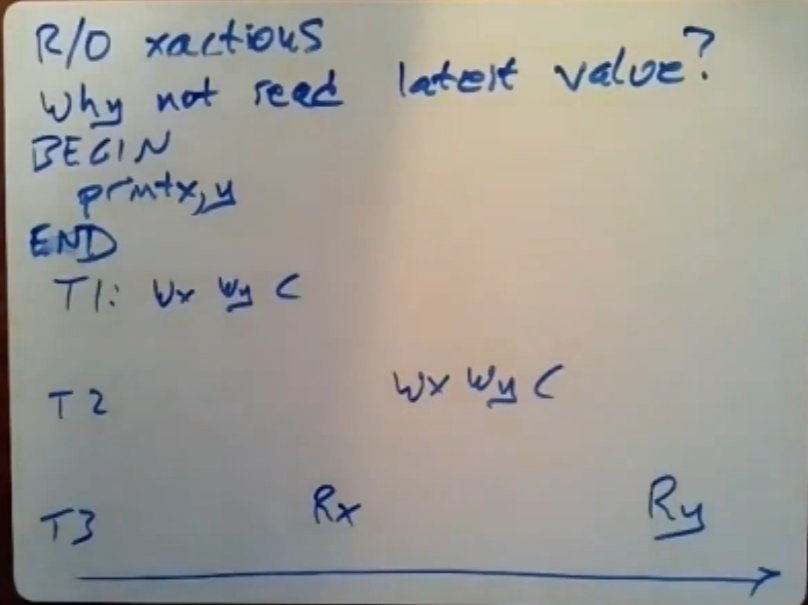 R/O xactions
Why not read latest value?
BEGIN
print x, y
END
T1: Wx Wy C
T2 Wx Wy C
T3 Rx Ry